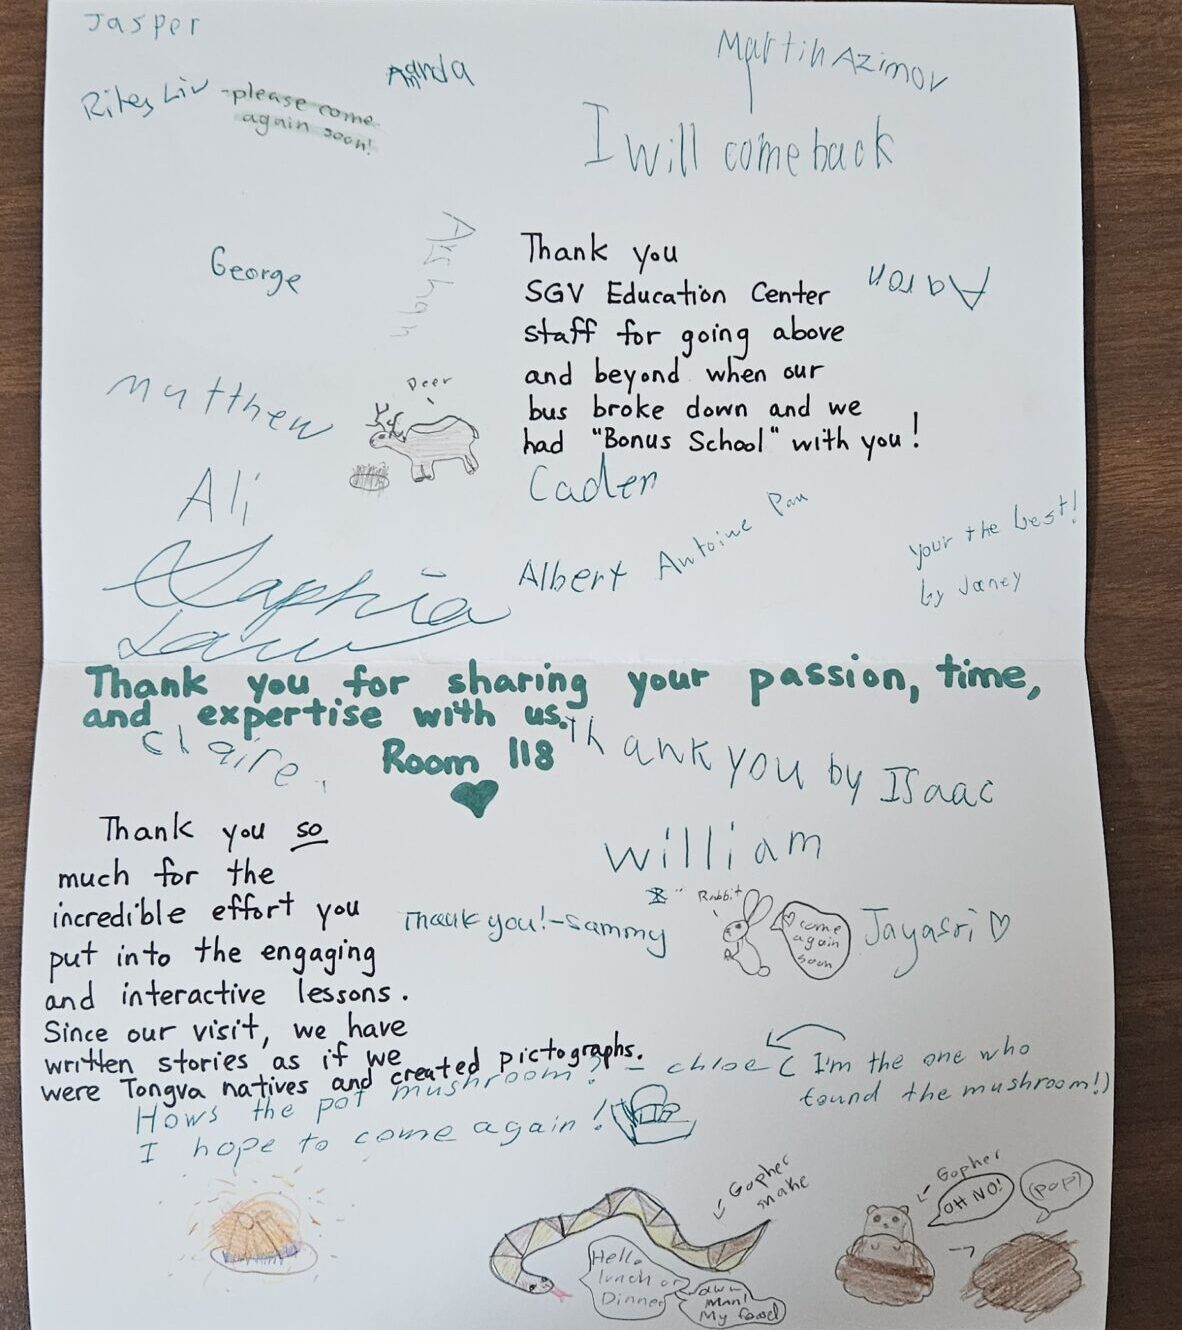 Jasper
Amnda
Martin Azimov
Riley Liv -please come
again soon!
I will come back
George
Thank you
SGV Education Center
staff for going above
and beyond when our
bus broke down and we
had "Bonus School" with you!
Aaron
Matthew
Deer
Caden
Ali
Albert Antoine Pau
your the best!
by Janey
Thank you for sharing your passion, time,
and expertise with us.
Room 118
Claire
Thank you by Isaac
William
Thank you so
much for the
incredible effort you
put into the engaging
and interactive lessons.
Since our visit, we have
written stories as if we
were Tongva natives and created pictographs.
Thank you!-Sammy
Rabbit
come
again
soon
Jayasri
Hows the pot mushroom? - chloe (I'm the one who
found the mushroom!)
I hope to come again!
Gopher
snake
Hello
lunch or
Dinner
aww
Man!
My food
Gopher
OH NO!
(pop)